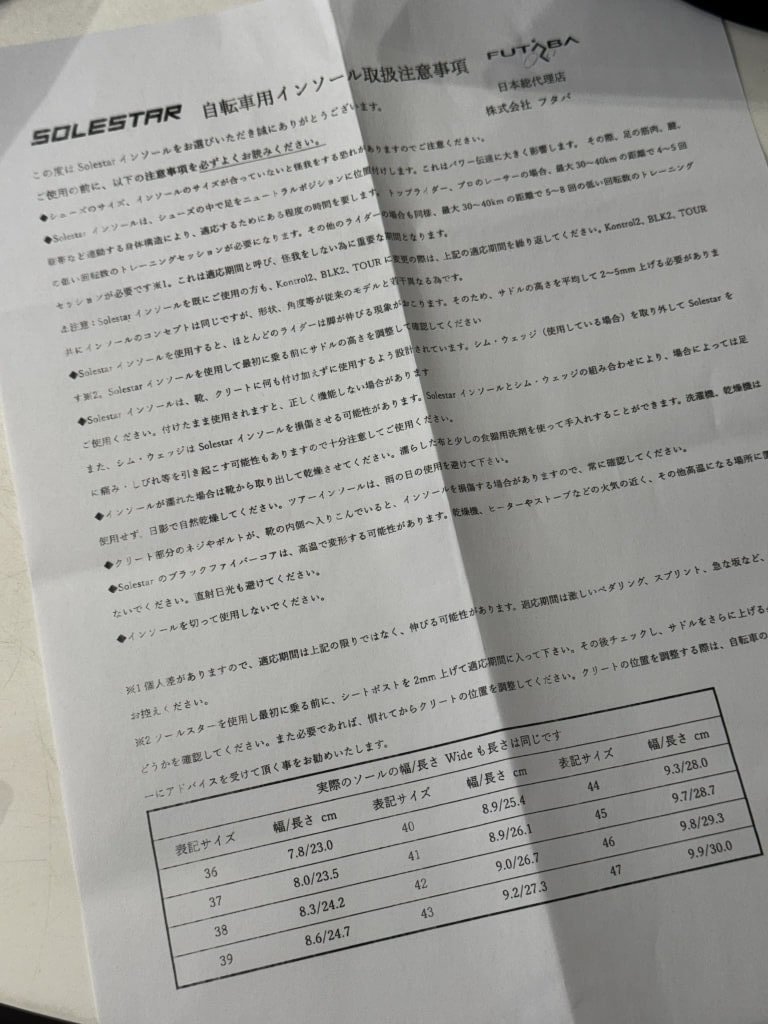 SOLESTAR 自転車用インソール取扱注意事項
FUTABA
日本総代理店
株式会社 フタバ
この度は Solestar インソールをお選びいただき誠にありがとうございます。
ご使用の前に、以下の注意事項を必ずよくお読みください。
◆シューズのサイズ、インソールのサイズが合っていないと怪我をする恐れがありますのでご注意ください。
◆Solestar インソールは、シューズの中で足をニュートラルポジションに位置付けします。これはパワー伝達に大きく影響します。その際、足の筋肉、腱、
靭帯など連動する身体構造により、適応するためにある程度の時間を要します。トップライダー、プロのレーサーの場合、最大 30～40km の距離で 4～5 回
の低い回転数のトレーニングセッションが必要になります。その他のライダーの場合も同様、最大 30～40km の距離で 5～8 回の低い回転数のトレーニング
セッションが必要です※1。これは適応期間と呼び、怪我をしない為に重要な期間となります。
⚠注意：Solestar インソールを既にご使用の方も、Kontrol2、BLK2、TOUR に変更の際は、上記の適応期間を繰り返してください。Kontrol2、BLK2、TOUR
共にインソールのコンセプトは同じですが、形状、角度等が従来のモデルと若干異なる為です。
◆Solestar インソールを使用すると、ほとんどのライダーは脚が伸びる現象がおこります。そのため、サドルの高さを平均して 2～5mm 上げる必要がありま
す※2。Solestar インソールを使用して最初に乗る前にサドルの高さを調整して確認してください
◆Solestar インソールは、靴、クリートに何も付け加えずに使用するよう設計されています。シム・ウェッジ（使用している場合）を取り外して Solestar を
ご使用ください。付けたまま使用されますと、正しく機能しない場合があります
また、シム・ウェッジは Solestar インソールを損傷させる可能性もあります。Solestar インソールとシム・ウェッジの組み合わせにより、場合によっては足
に痛み・しびれ等を引き起こす可能性もありますので十分注意してご使用ください。
◆インソールが濡れた場合は靴から取り出して乾燥させてください。濡らした布と少しの食器用洗剤を使って手入れすることができます。洗濯機、乾燥機は
使用せず、日影で自然乾燥してください。ツアーインソールは、雨の日の使用を避けて下さい。
◆クリート部分のネジやボルトが、靴の内側へ入りこんでいると、インソールを損傷する場合がありますので、常に確認してください。
◆Solestar のブラックファイバーコアは、高温で変形する可能性があります。乾燥機、ヒーターやストーブなどの火気の近く、その他高温になる場所に置
ないでください。直射日光も避けてください。
◆インソールを切って使用しないでください。
※1 個人差がありますので、適応期間は上記の限りではなく、伸びる可能性があります。適応期間は激しいペダリング、スプリント、急な坂など、
お控えください。
※2 ソールスターを使用し最初に乗る前に、シートポストを 2mm 上げて適応期間に入って下さい。その後チェックし、サドルをさらに上げる
どうかを確認してください。また必要であれば、慣れてからクリートの位置を調整してください。クリートの位置を調整する際は、自転車の
ーにアドバイスを受けて頂く事をお勧めいたします。
実際のソールの幅/長さ Wide も長さは同じです
表記サイズ 幅/長さ cm 表記サイズ 幅/長さ cm 表記サイズ 幅/長さ cm
36 7.8/23.0 40 8.9/25.4 44 9.3/28.0
37 8.0/23.5 41 8.9/26.1 45 9.7/28.7
38 8.3/24.2 42 9.0/26.7 46 9.8/29.3
39 8.6/24.7 43 9.2/27.3 47 9.9/30.0